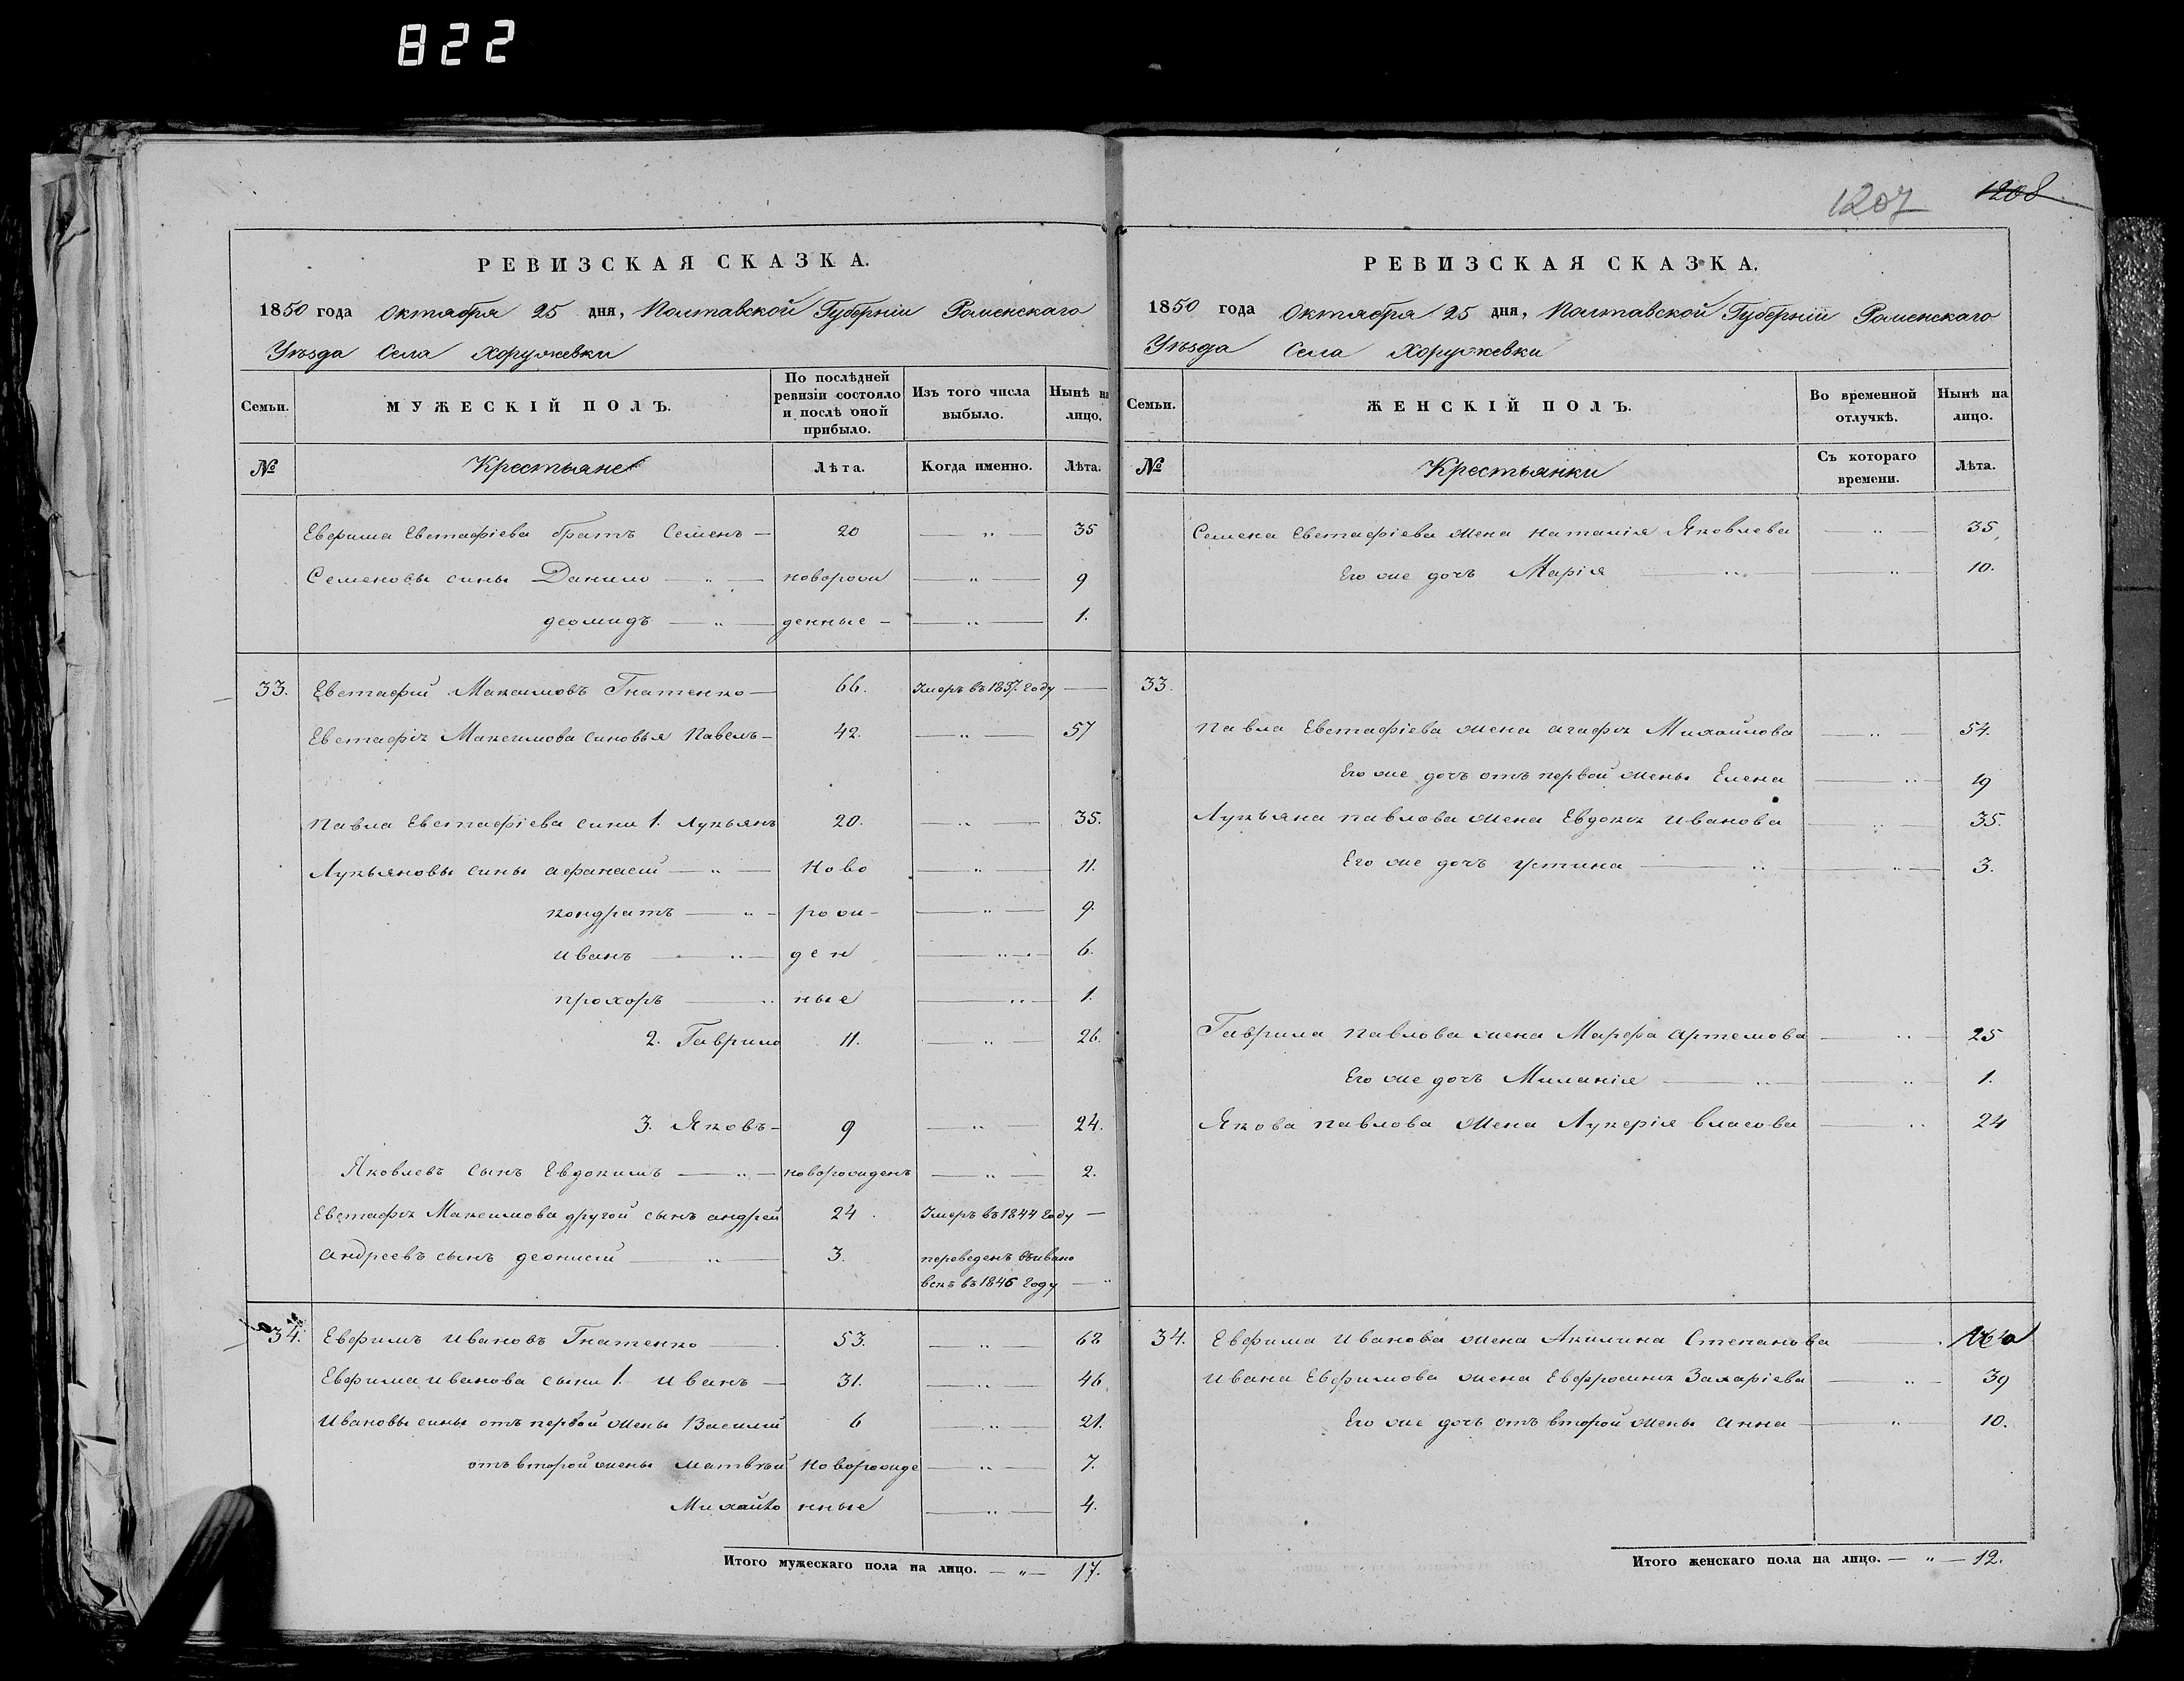 822
1207 1208
РЕВИЗСКАЯ СКАЗКА.
1850 года Октября 25 дня, Полтавской Губерніи Роменскаго
Уѣзда Села Хоружевки
Семьи.
МУЖЕСКІЙ ПОЛЪ.
По послѣдней ревизіи состояло и послѣ оной прибыло.
Изъ того числа выбыло.
Нынѣ на лицо.
№ Крестьяне Лѣта. Когда именно. Лѣта.
Евфима Евстафіева братъ Семенъ — 20 — „ — 35
Семеновы сины Данило — „ — поворож — „ — 9
деомидъ — „ — денные — — „ — 1.
33. Евстафий Максимовъ Гнатенко — 66. Умеръ въ 1837. году —
Евстафіꙗ Максимова синовья Павелъ — 42. — „ — 57
Павла Евстафіева сини 1. Лукьянъ 20. — „ — 35.
Лукьяновы сины афанасій — „ — Ново — „ — 11.
кондратъ — „ — рож — — „ — 9.
иванъ — „ — ден — „ — 6.
прохоръ — „ ные — „ — 1.
2. Гаврило 11. — „ — 26.
3. Яковъ — 9 — „ — 24.
Яковлевъ сынъ Евдокимъ — „ — новорожденъ — „ — 2.
Евстафіꙗ Максимова другой сынъ андрей 24. Умеръ въ 1844 году —
андреевъ сынъ деонисій — „ — 3. переведенъ въ ивано
вскъ въ 1846 году — „
34. Евфимъ ивановъ Гнатенко — 53. — „ — 68
Евфима иванова сыни 1. иванъ — 31. — „ — 46.
ивановы сины отъ первой жены Василий 6 — „ — 21.
отъ второй жены матвѣй новорожде — „ — 7.
Михайло нные — „ — 4.
Итого мужескаго пола на лицо. — „ — 17.
РЕВИЗСКАЯ СКАЗКА.
1850 года Октября 25 дня, Полтавской Губерніи Роменскаго
Уѣзда Села Хоружевки
Семьи.
ЖЕНСКІЙ ПОЛЪ.
Во временной отлучкѣ.
Нынѣ на лицо.
№ Крестьянки Съ котораго времени. Лѣта.
Семена Евстафіева жена наталія Яковлева — „ — 35.
Его же дочъ Марія — „ — „ — 10.
33.
павла Евстафіева жена агафꙗ Михайлова — „ — 54.
Его же дочъ отъ первой жены Елена — „ — 19
Лукьяна павлова жена Евдокꙗ иванова — „ — 35.
Его же дочъ устина — „ — „ — 3.
Гаврила павлова жена Марфа артемова — „ — 25
Его же дочъ Миланія — „ — „ 1.
Якова павлова жена Лукерія власова — „ 24
34. Евфима иванова жена Акилина Степанова —
ивана Евфимова жена Евфросинꙗ Захаріева — „ — 39
Его же дочъ отъ второй жены анна — „ — 10.
Итого женскаго пола на лицо. — „ — 12.